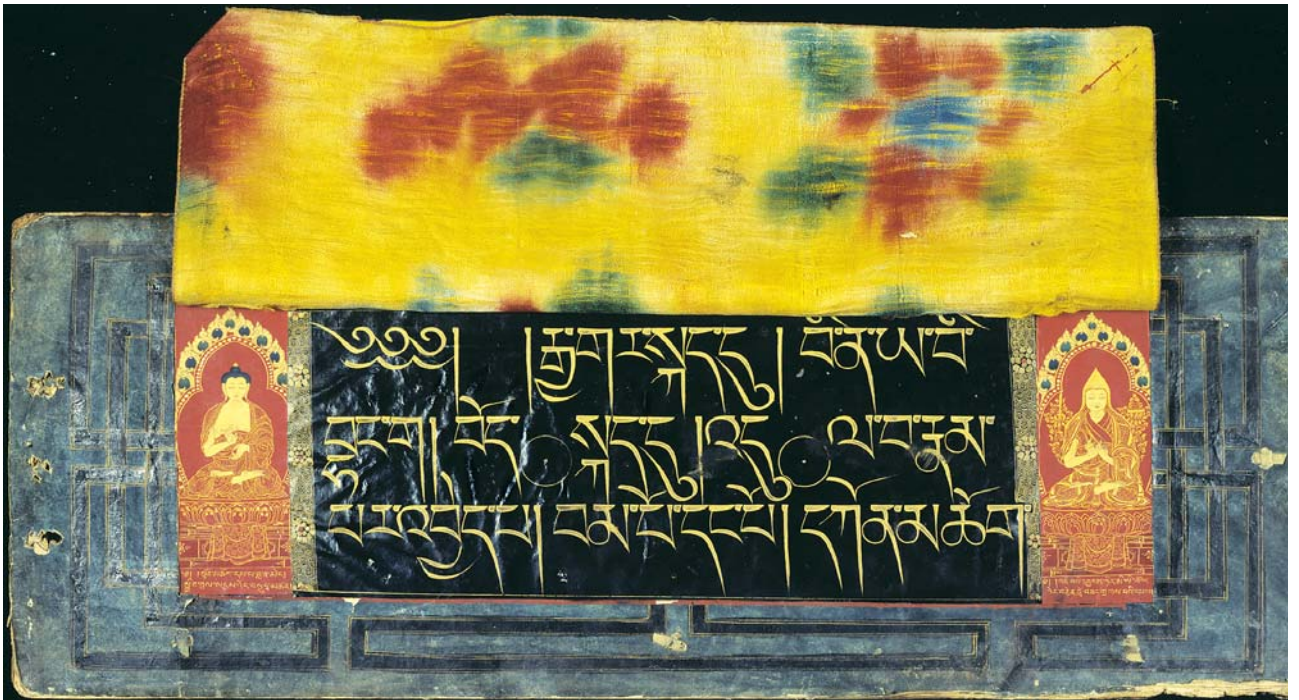 ༄༅༅། །རྒྱ་གར་སྐད་དུ། བི་ནེ་ཡ་བི་
བྷང་ག། བོད་སྐད་དུ། འདུལ་བ་རྣམ་
པར་འབྱེད་པ། བམ་པོ་དང་པོ། དཀོན་མཆོག་